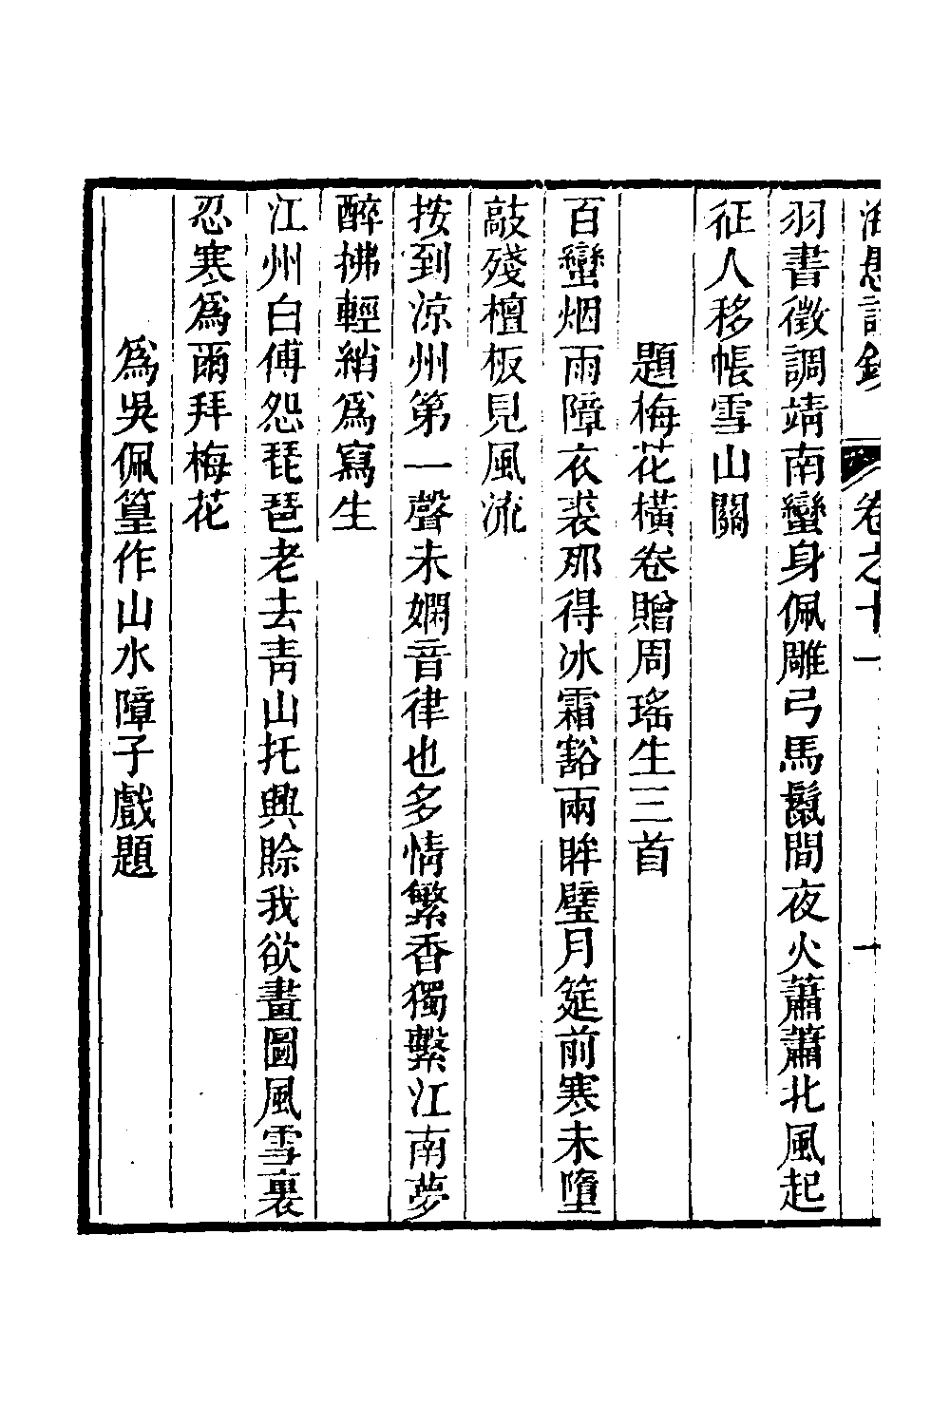 海愚詩鈔 卷之十一 十
羽書徵調靖南蠻身佩雕弓馬鬣間夜火蕭蕭北風起
征人移帳雪山關
題梅花橫卷贈周瑤生三首
百蠻烟雨障衣裘那得冰霜豁兩眸璧月筵前寒未墮
敲殘檀板見風流
按到涼州第一聲未嫻音律也多情繁香獨繫江南夢
醉拂輕綃爲寫生
江州白傅怨琵琶老去靑山托興賒我欲畫圖風雪裏
忍寒爲爾拜梅花
爲吳佩篁作山水障子戲題